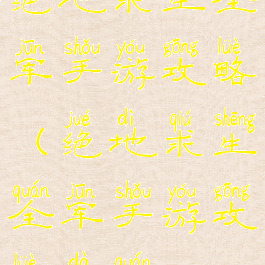 jūn shǒu yóu gōng lüè
军手游攻略
jué dì qiú shēng
（絕地求生
quán jūn shǒu yóu gōng
全军手游攻